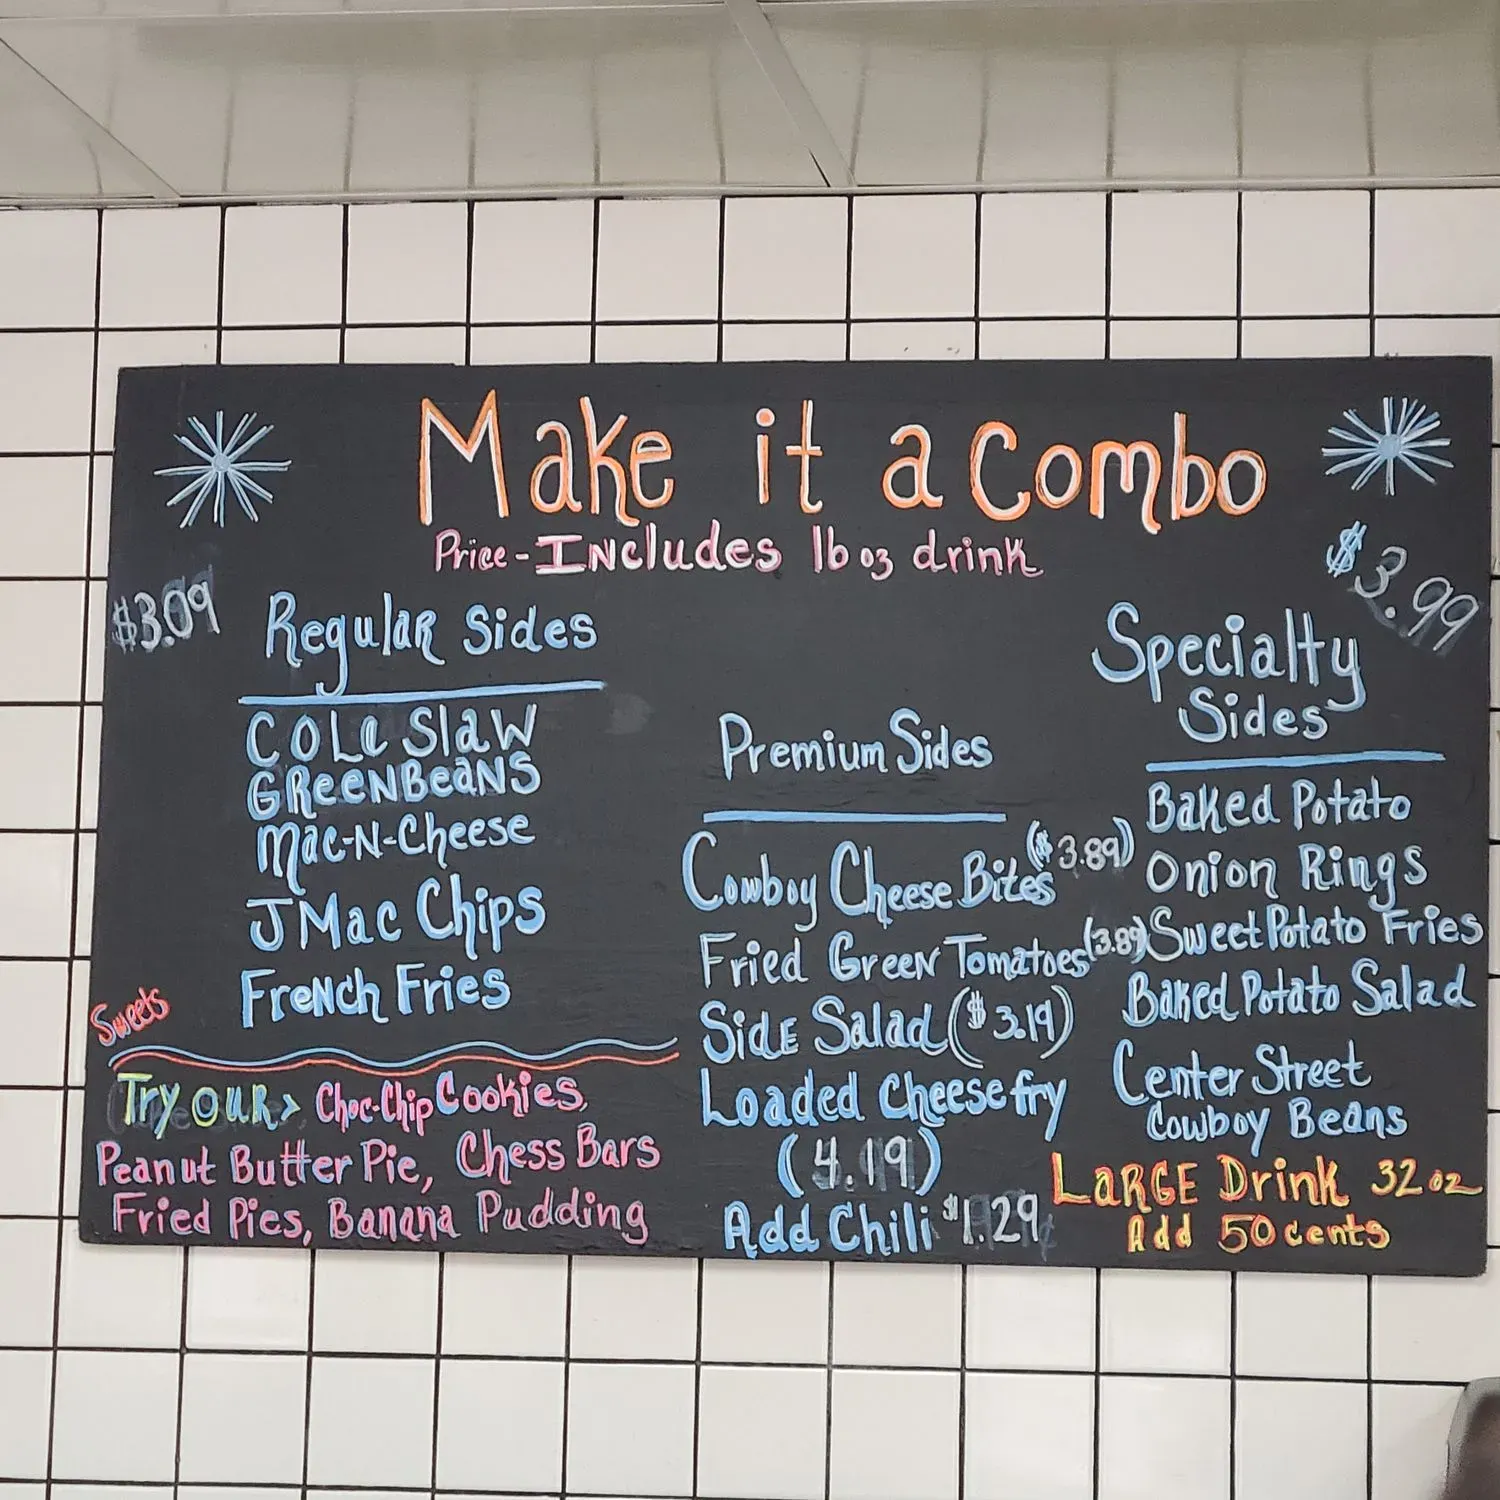 Make it a Combo
Price - Includes 16 oz drink
$3.09
Regular Sides
Cole Slaw
Green Beans
Mac-N-Cheese
JMac Chips
French Fries
Premium Sides
Cowboy Cheese Bites ($3.89)
Fried Green Tomatoes (3.89)
Side Salad ($3.19)
Loaded Cheese fry
(4.19)
Add Chili $1.29
$3.99
Specialty
Sides
Baked Potato
Onion Rings
Sweet Potato Fries
Baked Potato Salad
Center Street
Cowboy Beans
LARGE Drink 32 oz
Add 50 cents
Sweets
Try our > Choc-Chip Cookies,
Peanut Butter Pie, Chess Bars
Fried Pies, Banana Pudding